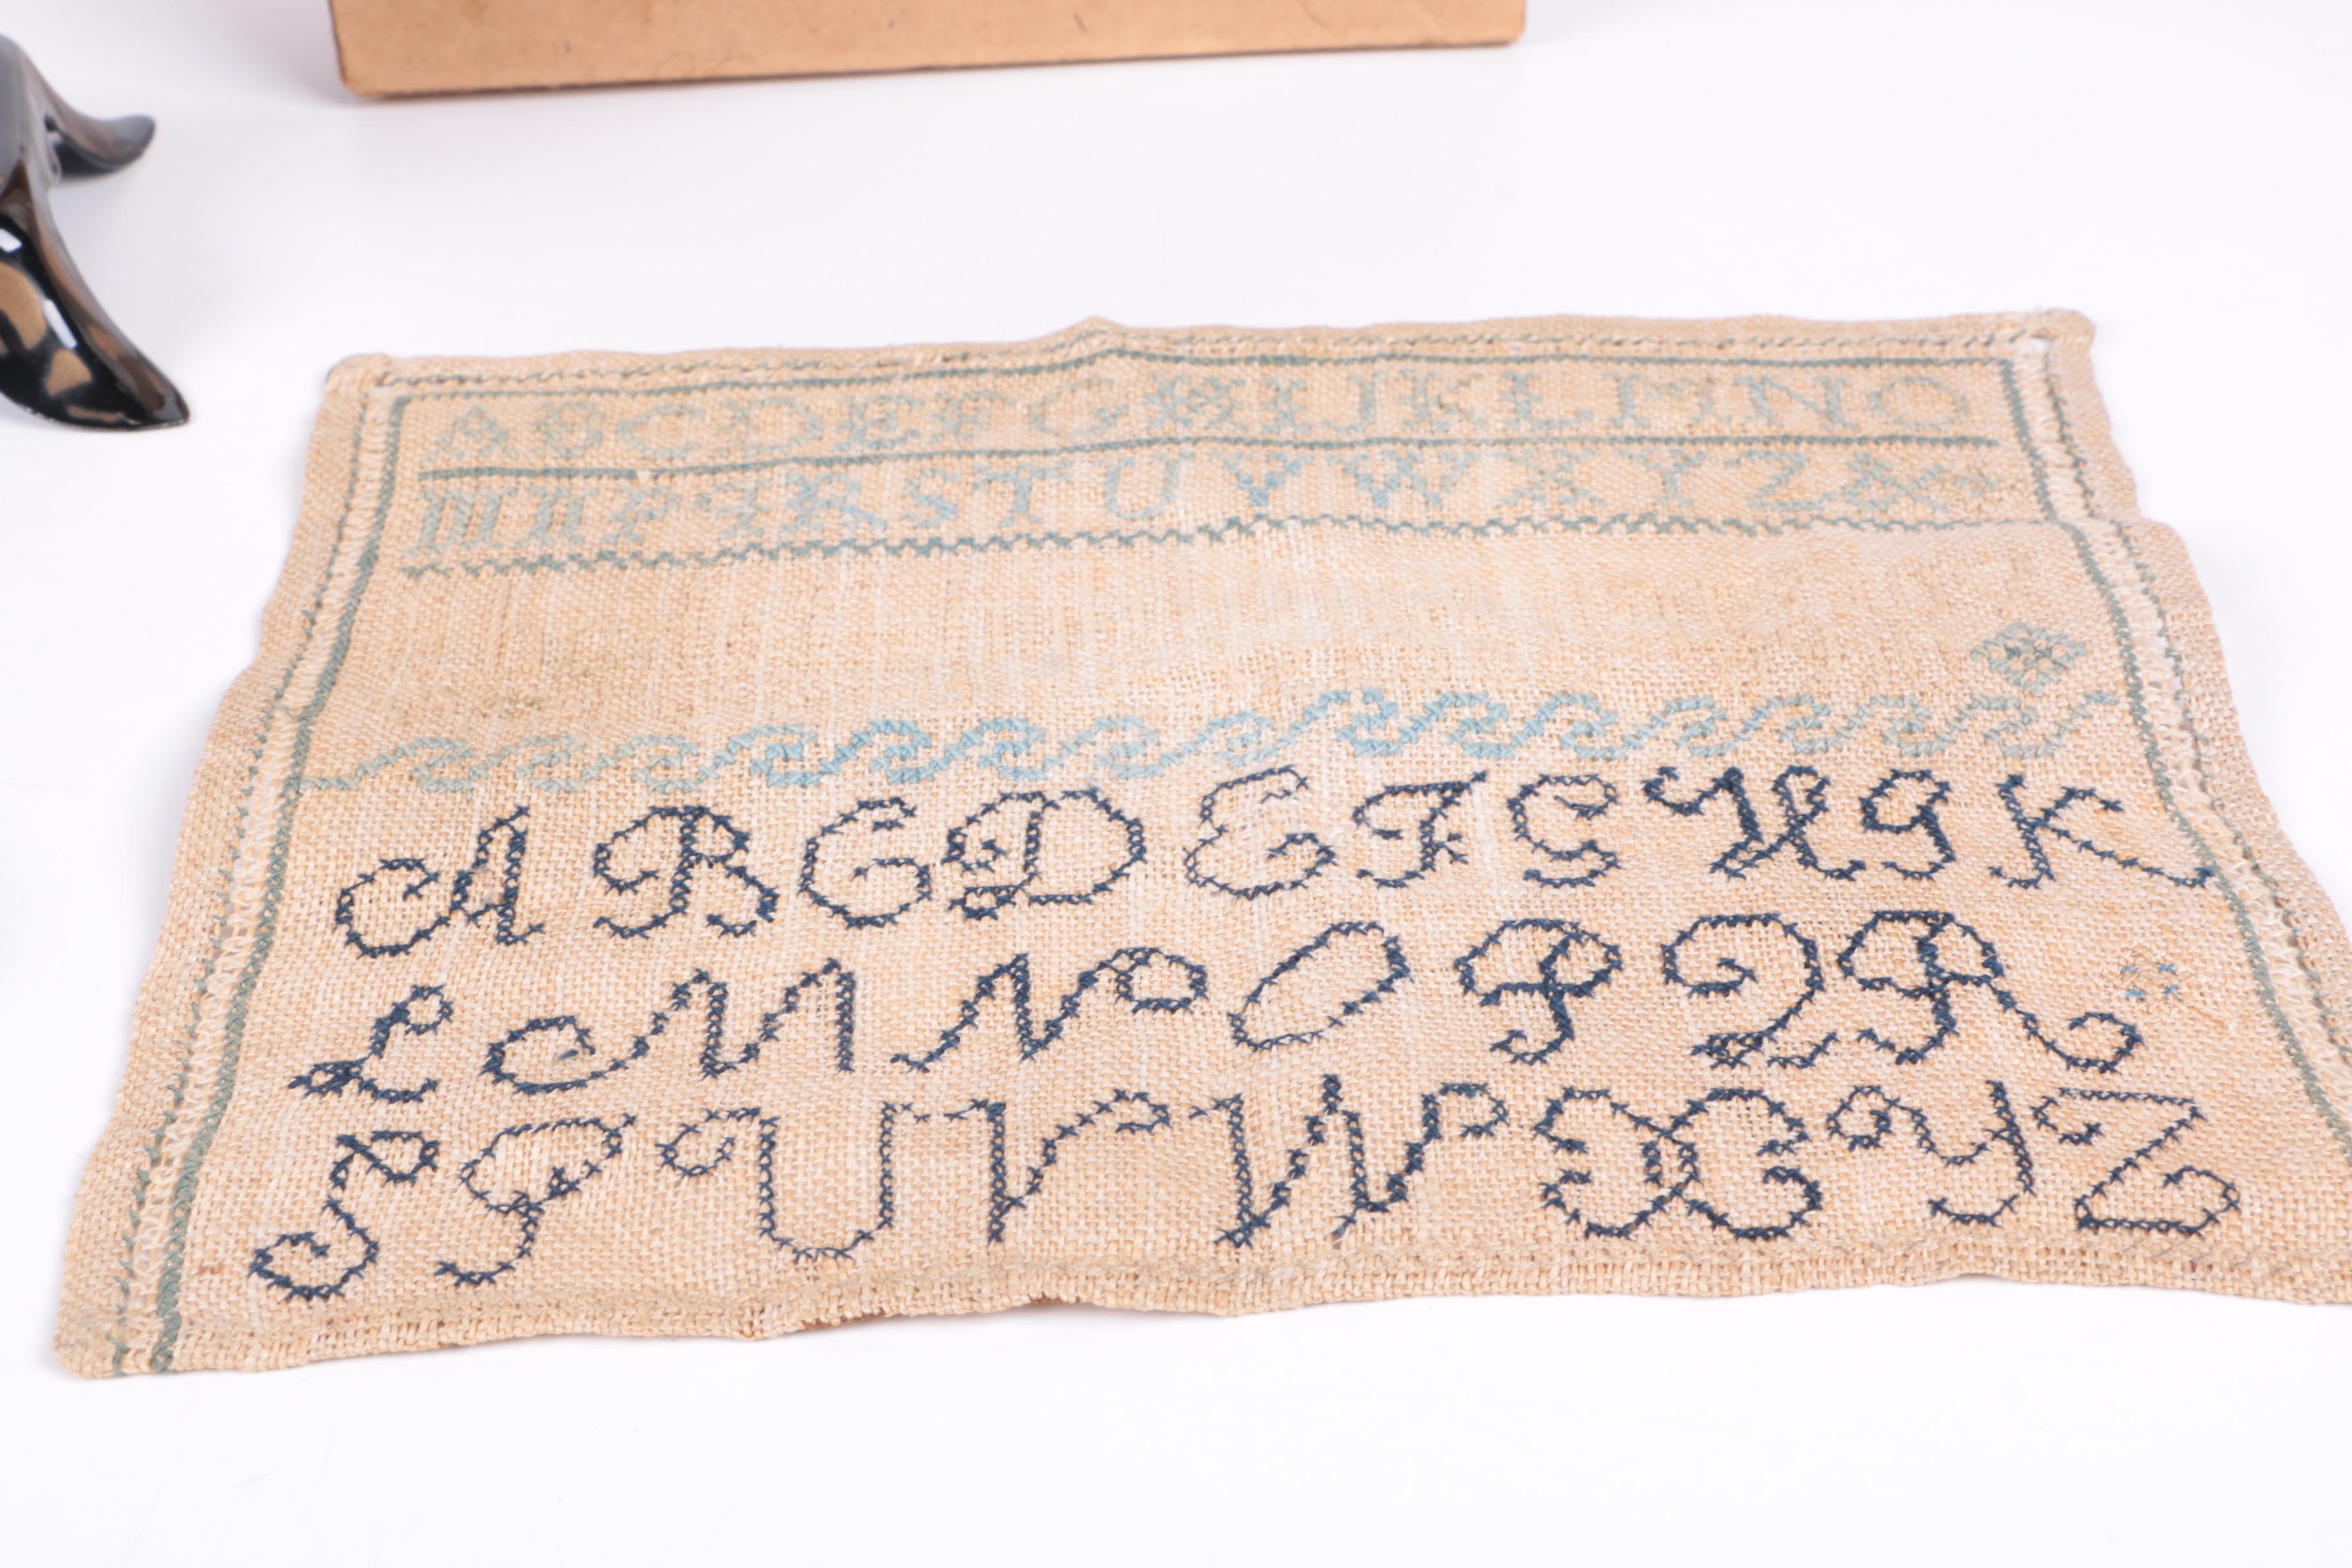 A B C D E F G H I J K L M N O
P Q R S T U V W X Y Z &
A B C D E F G H I K
L M N O P Q R
S T U V W X Y Z